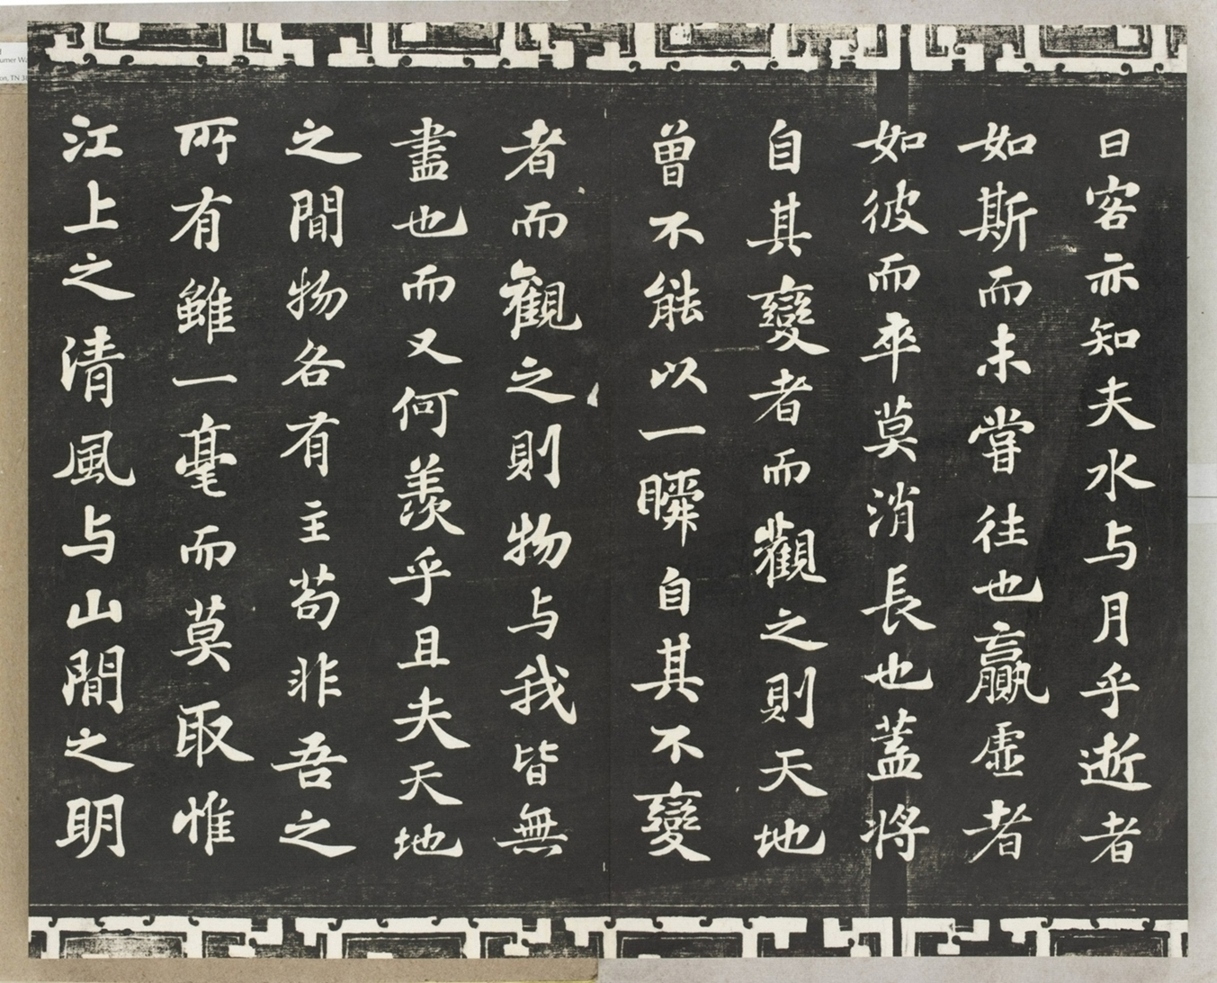 曰客亦知夫水与月乎逝者
如斯而未甞往也贏虛者
如彼而卒莫消長也蓋将
自其變者而觀之則天地
曾不能以一瞬自其不變
者而觀之則物与我皆無
盡也而又何羨乎且夫天地
之間物各有主苟非吾之
所有雖一毫而莫取惟
江上之清風与山間之明